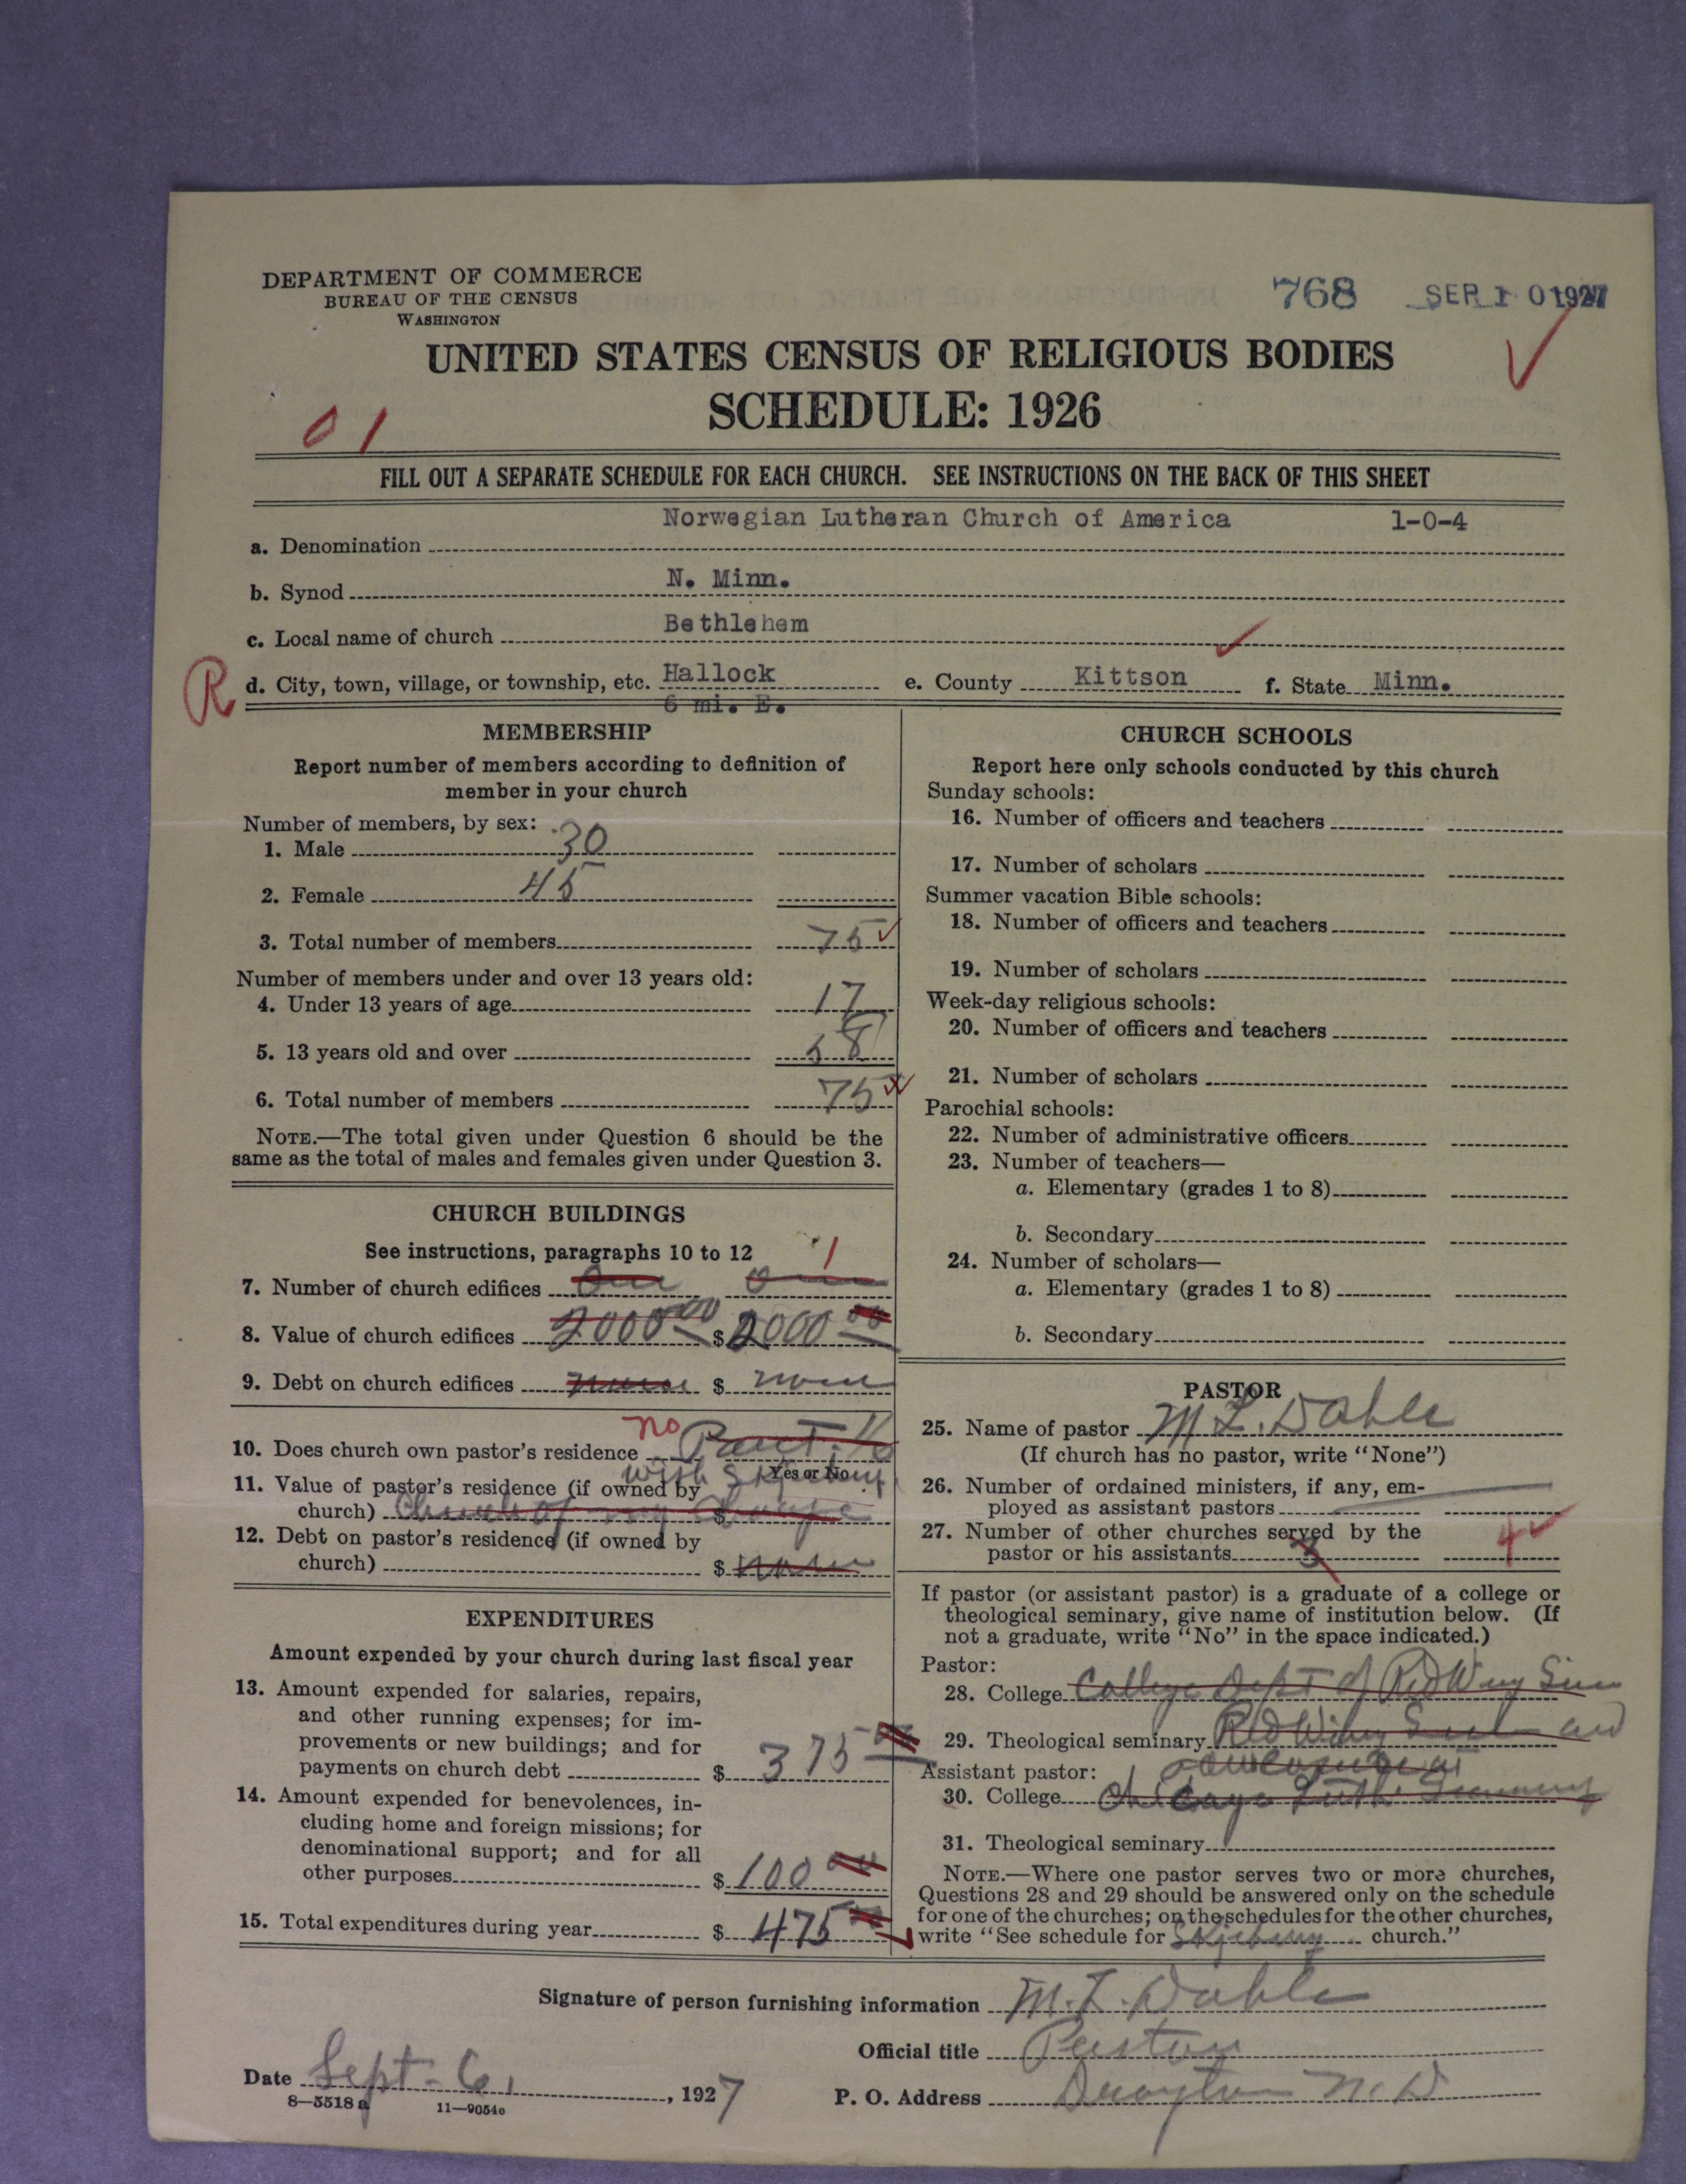 DEPARTMENT OF COMMERCE
BUREAU OF THE CENSUS
WASHINGTON
768 SEP 10 1927
UNITED STATES CENSUS OF RELIGIOUS BODIES
SCHEDULE: 1926
01
FILL OUT A SEPARATE SCHEDULE FOR EACH CHURCH. SEE INSTRUCTIONS ON THE BACK OF THIS SHEET
a. Denomination Norwegian Lutheran Church of America 1-0-4
b. Synod N. Minn.
c. Local name of church Bethlehem
R d. City, town, village, or township, etc. Hallock e. County Kittson f. State Minn.
6 mi. E.
MEMBERSHIP
Report number of members according to definition of
member in your church
Number of members, by sex:
1. Male 30
2. Female 45
3. Total number of members 75
Number of members under and over 13 years old:
4. Under 13 years of age 17
5. 13 years old and over 58
6. Total number of members 75
NOTE.—The total given under Question 6 should be the
same as the total of males and females given under Question 3.
CHURCH BUILDINGS
See instructions, paragraphs 10 to 12 1
7. Number of church edifices One
8. Value of church edifices 2000 00 $ 2000 00
9. Debt on church edifices none $ none
10. Does church own pastor's residence no Part
Yes or No
with
11. Value of pastor's residence (if owned by
church) $
12. Debt on pastor's residence (if owned by
church) $ none
EXPENDITURES
Amount expended by your church during last fiscal year
13. Amount expended for salaries, repairs,
and other running expenses; for im-
provements or new buildings; and for
payments on church debt $ 375 00
14. Amount expended for benevolences, in-
cluding home and foreign missions; for
denominational support; and for all
other purposes $ 100 00
15. Total expenditures during year $ 475 00
CHURCH SCHOOLS
Report here only schools conducted by this church
Sunday schools:
16. Number of officers and teachers
17. Number of scholars
Summer vacation Bible schools:
18. Number of officers and teachers
19. Number of scholars
Week-day religious schools:
20. Number of officers and teachers
21. Number of scholars
Parochial schools:
22. Number of administrative officers
23. Number of teachers—
a. Elementary (grades 1 to 8)
b. Secondary
24. Number of scholars—
a. Elementary (grades 1 to 8)
b. Secondary
PASTOR
25. Name of pastor M. L. Dahle
(If church has no pastor, write "None")
26. Number of ordained ministers, if any, em-
ployed as assistant pastors
27. Number of other churches served by the
pastor or his assistants 3 4
If pastor (or assistant pastor) is a graduate of a college or
theological seminary, give name of institution below. (If
not a graduate, write "No" in the space indicated.)
Pastor:
28. College College Dept of Red Wing Sem
29. Theological seminary Red Wing Sem and
Assistant pastor:
30. College Chicago Luth. Seminary
31. Theological seminary
NOTE.—Where one pastor serves two or more churches,
Questions 28 and 29 should be answered only on the schedule
for one of the churches; on the schedules for the other churches,
write "See schedule for Skjeberg church."
Signature of person furnishing information M. L. Dahle
Official title Pastor
Date Sept. 6, 1927 P. O. Address Drayton N. D
8—5518 a 11—9054c